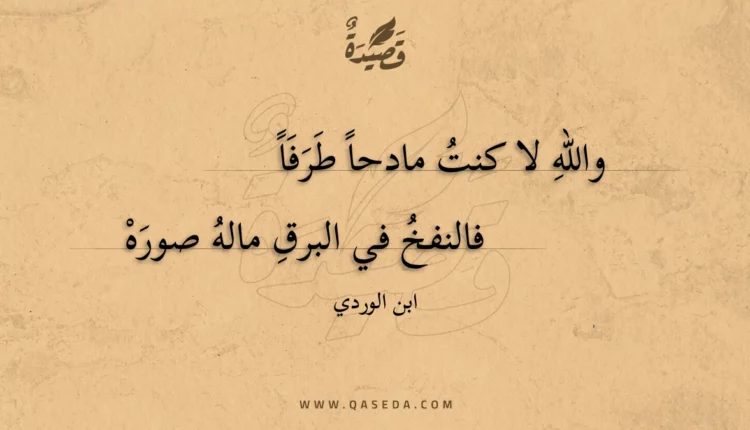 قَصِيْدَةٌ
واللهِ لا كنتُ مادحاً طَرَفَاً
فالنفخُ في البرقِ مالهُ صورَهْ
ابن الوردي
WWW.QASEDA.COM